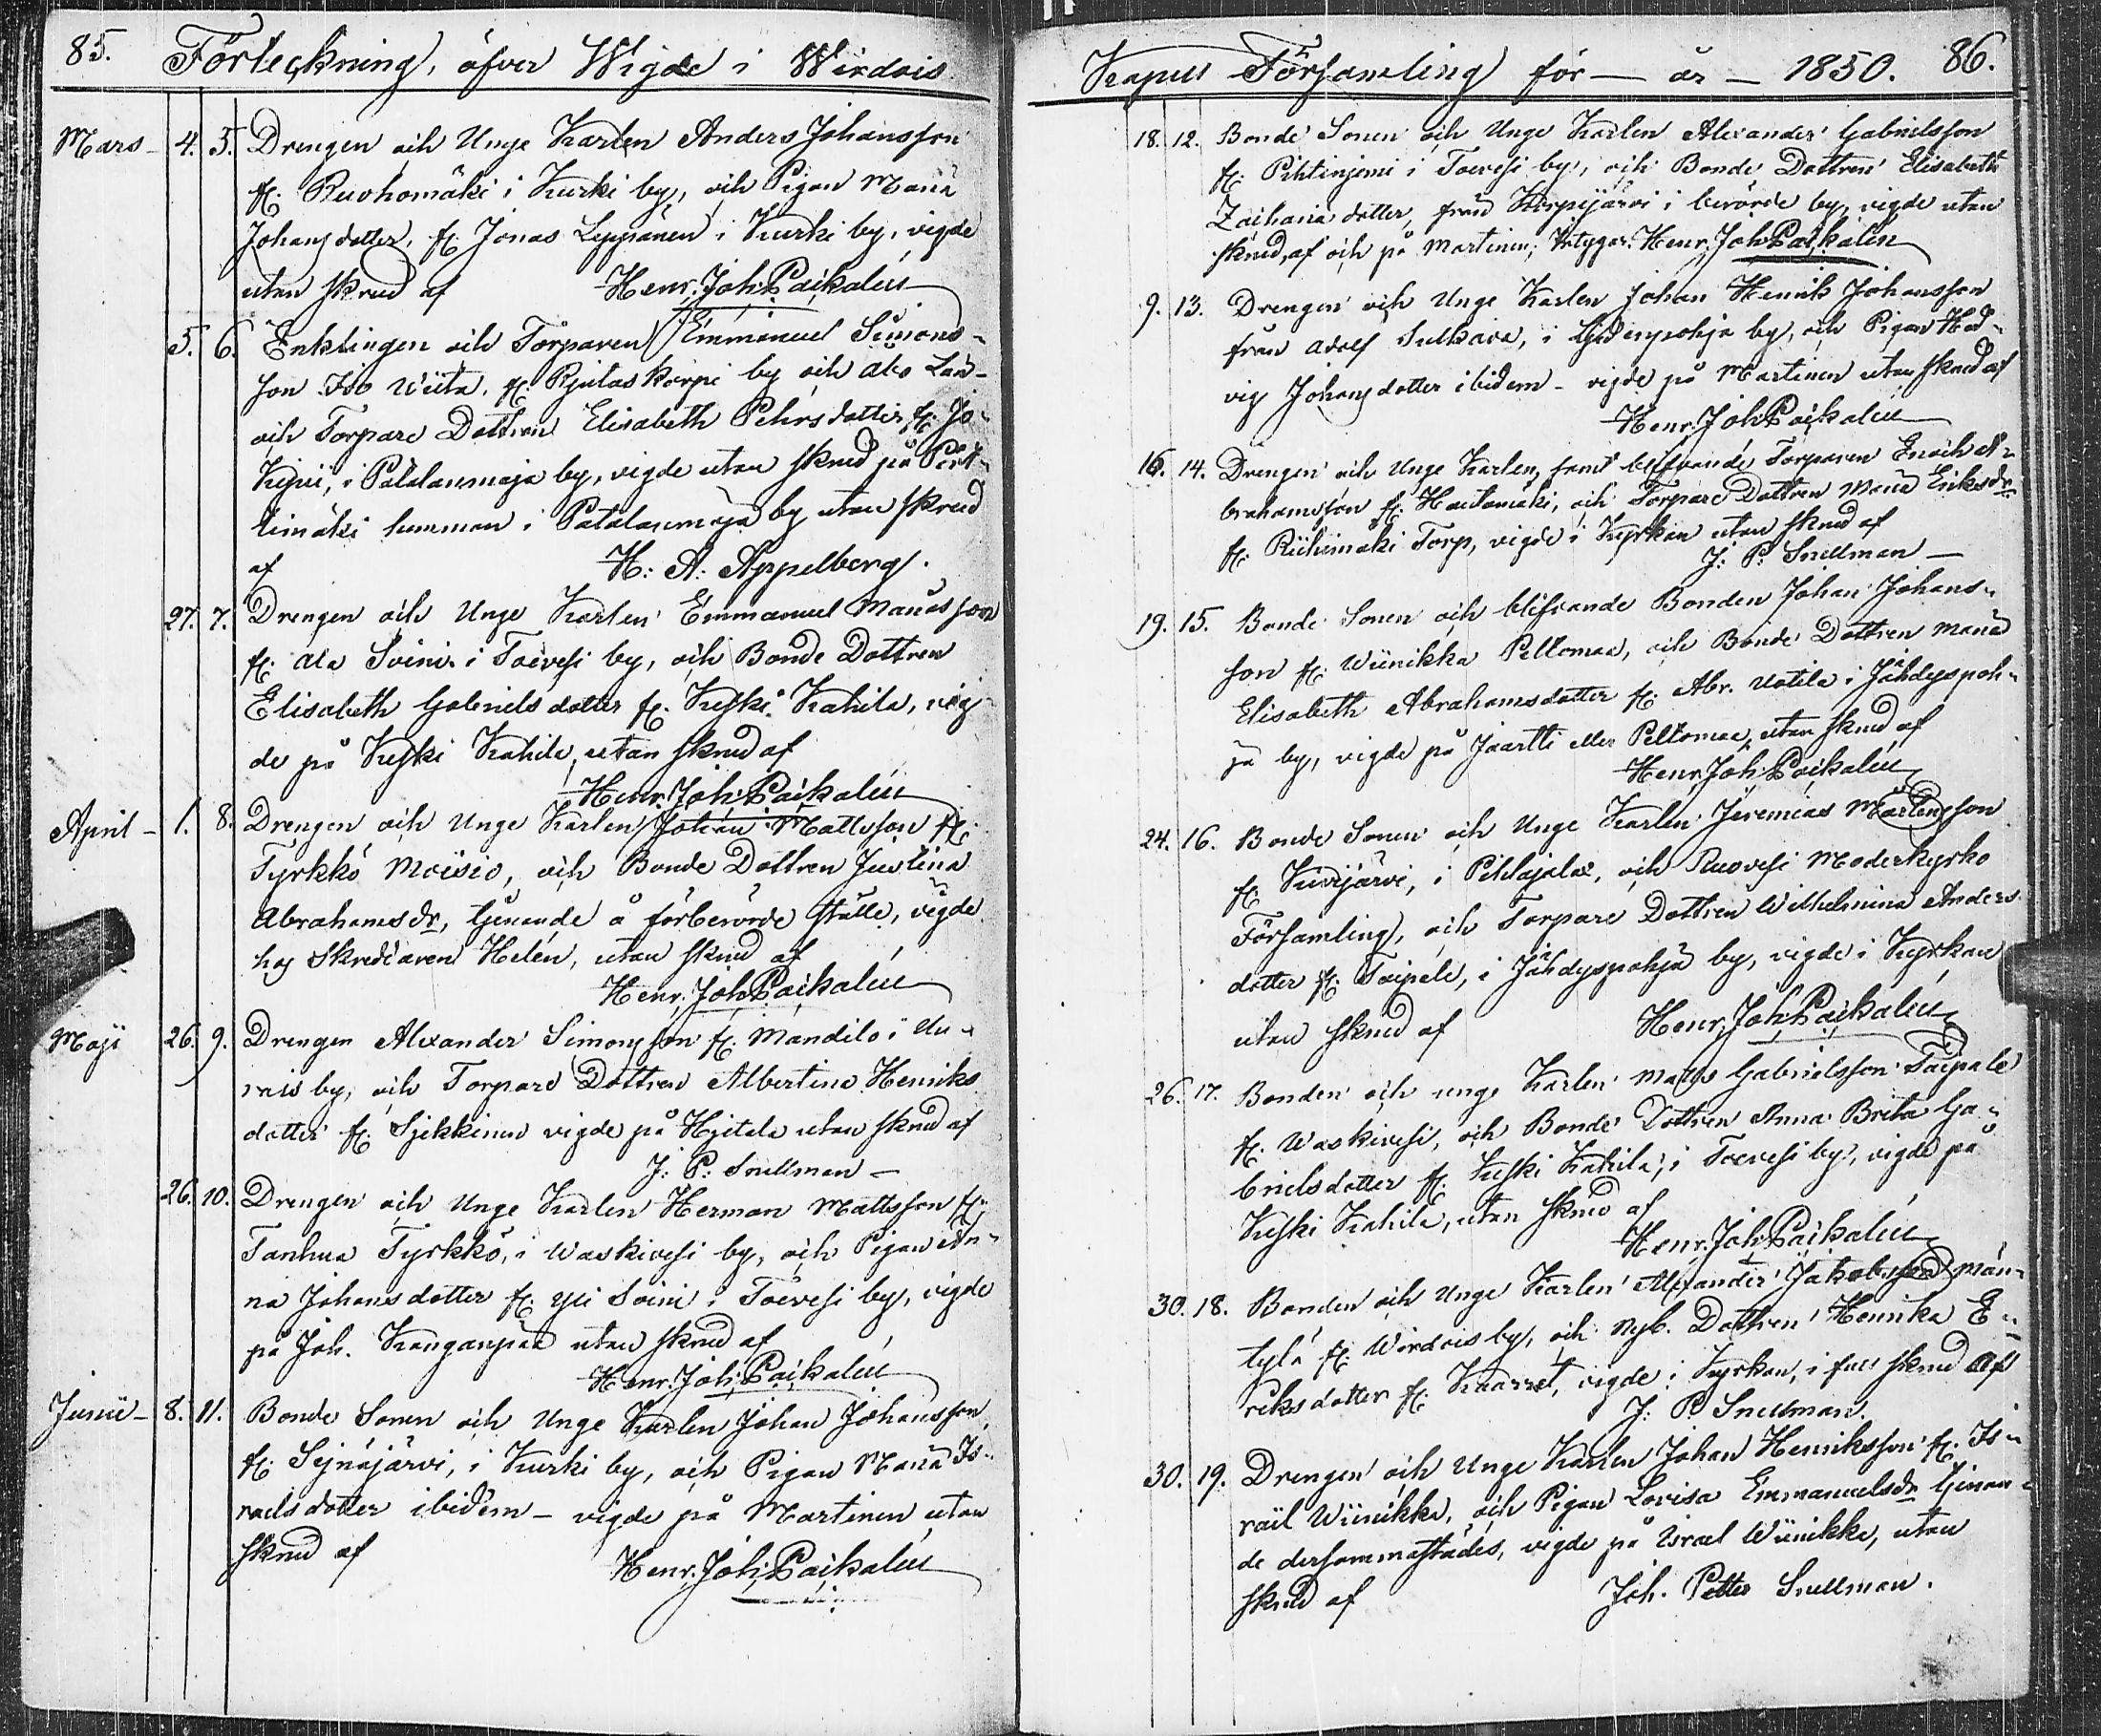 85. Förteckning, öfver Wigde i Wirdois
Mars – 4. 5. Drengen och Unge Karlen Anders Johansson
fr. Ruohomäki i Kurki by, och Pigan Maria
Johansdotter, fr. Jonas Leppänen i Kurki by, vigde
utan skrud af Henr. Joh. Paikalén
5. 6. Enklingen och Torparen Emmanuel Simons-
son Iso Wiita, fr. korpi by och abo Län
och Torpare Dottren Elisabeth Pehrsdotter, fr.
i Patalanmaja by, vigde utan skrud på
limäki hemman i Patalanmaja by utan skrud
af H: A: Appelberg.
27. 7. Drengen och Unge Karlen Emmanuel Mariasson
fr. Ala Soini i Toivesi by, och Bonde Dottren
Elisabeth Gabrielsdotter fr. Keski Kahila, vig-
de på Keski Kahila, utan skrud af
Henr. Joh. Paikalén
April – 1. 8. Drengen och Unge Karlen Johan Mattsson fr.
Tyrkkö Moisio, och Bonde Dottren Justina
Abrahamsdr, tjenande å förberörde ställe, vigde
hos Skreddaren Helén, utan skrud af
Henr. Joh. Paikalén
Maji 26. 9. Drengen Alexander Simonsson fr. Mandilo i
by, och Torpare Dottren Albertina Henriks
dotter fr. Sjekkinen vigde på Hjitala utan skrud af
J: P: Snellman –
26. 10. Drengen och Unge Karlen Herman Mattsson fr.
Tanhua Tyrkkö, i Waskivesi by, och Pigan An-
na Johansdotter fr. Yli Soini i Toivesi by, vigde
på Joh. Kanganpää utan skrud af
Henr. Joh. Paikalén
Junii – 8. 11. Bonde Sonen och Unge Karlen Johan Johansson,
fr. Sejnäjärvi, i Kurki by, och Pigan Maria Is-
raelsdotter ibidem – vigde på Martinen utan
skrud af Henr. Joh. Paikalén
Kapell Församling för – år – 1850. 86.
18. 12. Bonde Sonen och Unge Karlen Alexander Gabrielsson
fr. Pihtinjemi i Toivesi by, och Bonde Dottren Elisabeth
Zacharia dotter, från Korpijärvi i berörde by, vigde utan
skrud, af och på Martinen, intygar. Henr. Joh. Paikalén
9. 13. Drengen och Unge Karlen Johan Henrik Johansson
från Adolf Sulkava, i pohja by, och Pigan Hed-
vig Johansdotter ibidem – vigde på Martinen utan skrud af
Henr. Joh. Paikalén
16. 14. Drengen och Unge Karlen, samt blifvande Torparen Enoch A-
brahamsson fr. Hautamäki, och Torpare Dottren Maria Eriksdr
fr. Riihimäki Torp, vigde i Kyrkan utan skrud af
J: P: Snellman –
19. 15. Bonde Sonen och blifvande Bonden Johan Johans-
son fr. Wiinikka Peltomaa, och Bonde Dottren Maria
Elisabeth Abrahamsdotter fr. Abr. Uotila i Jähdyspoh-
ja by, vigde på Jaartti eller Peltomaa, utan skrud af
Henr. Joh. Paikalén
24. 16. Bonde Sonen och Unge Karlen Jeremias Mårtensson
fr. Kivijärvi, i Pihlajalax, och Ruovesi Moderkyrko
Församling, och Torpare Dottren Wilhelmina Anders
dotter fr. Taipale, i Jähdyspohja by, vigde i Kyrkan
utan skrud af Henr. Joh. Paikalén
26. 17. Bonden och unge Karlen Matts Gabrielsson Taipale
fr. Waskivesi, och Bonde Dottren Anna Brita Ga-
brielsdotter fr. Keski Kahila, i Toivesi by, vigde på
Keski Kahila, utan skrud af
Henr. Joh. Paikalén
30. 18. Bonden och Unge Karlen Alexander Jakobsson Män-
tylä fr. Wirdois by, och Nyb. Dottren Henrika E-
riksdotter fr. vigde i Kyrkan, i full skrud af
J: P. Snellman.
30. 19. Drengen och Unge Karlen Johan Henriksson fr. Is-
rail Wiinikka, och Pigan Lovisa Emmanuelsdr tjenan-
de dersammastädes, vigde på Israel Wiinikka, utan
skrud af Joh. Petter Snellman.